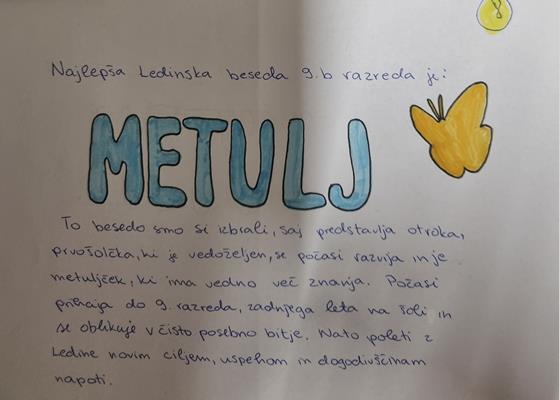 Najlepša Ledinska beseda 9.b razreda je:
METULJ
To besedo smo si izbrali, saj predstavlja otroka,
prvošolčka, ki je vedoželjen, se počasi razvija in je
metuljček, ki ima vedno več znanja. Počasi
prihaja do 9. razreda, zadnjega leta na šoli in
se oblikuje v čisto posebno bitje. Nato poleti z
Ledine novim ciljem, uspehom in dogodivščinam
napoti.